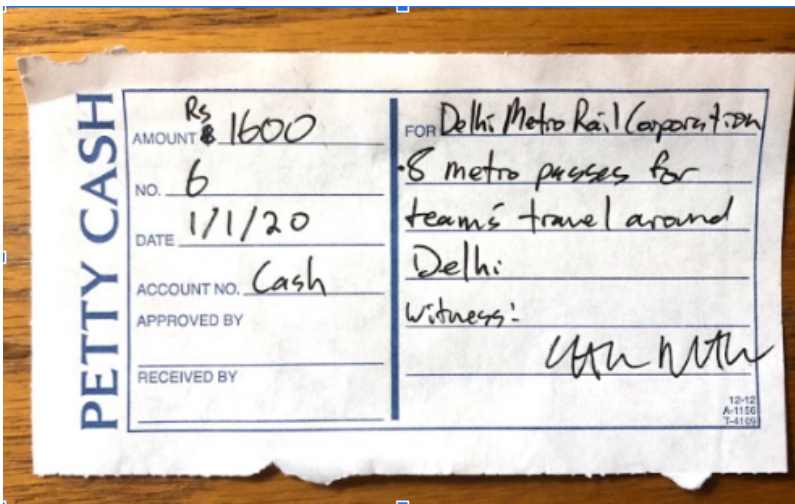 PETTY CASH
AMOUNT Rs 1600
NO. 6
DATE 1/1/20
ACCOUNT NO. Cash
APPROVED BY
RECEIVED BY
FOR Delhi Metro Rail Corporation
8 metro passes for
team's travel around
Delhi
Witness:
12-12
A-1156
T-4109